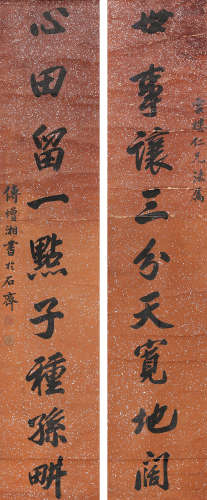 世事讓三分天寬地闊
心田留一點子種孫畊
仁兄法屬
傅增湘書於石齋